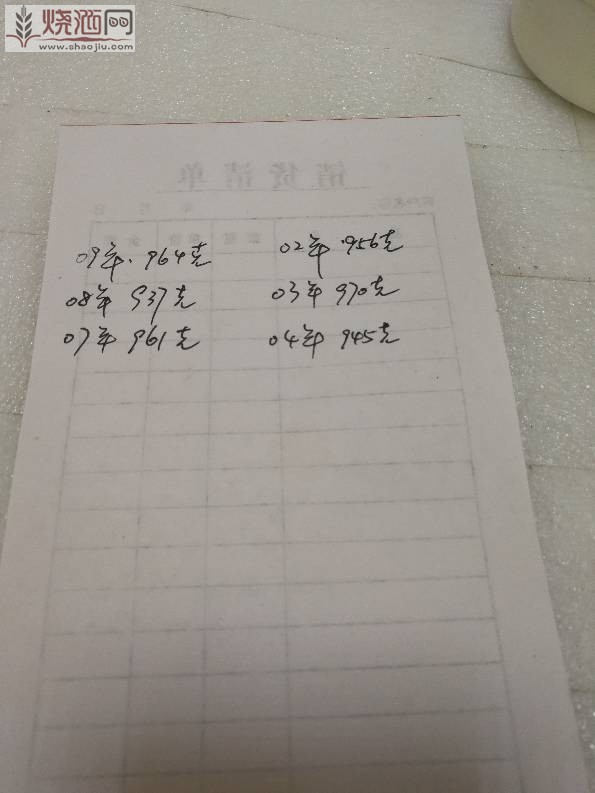 烧酒网
www.shaojiu.com
销货清单
09年.964克
02年.956克
08年 937克
03年 970克
07年 961克
04年 945克